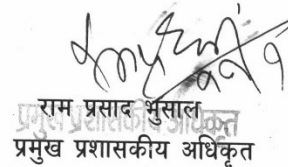 राम प्रसाद भुसाल
प्रमुख प्रशासकीय अधिकृत
प्रमुख प्रशासकीय अधिकृत